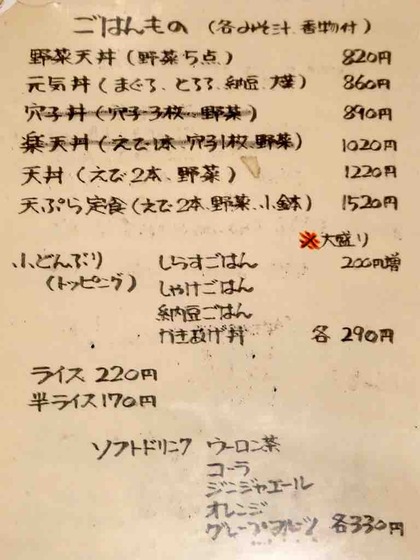 ごはんもの (各みそ汁、香物付)
野菜天丼 (野菜5点) 820円
元気丼 (まぐろ、とろろ、納豆、大葉) 860円
穴子丼 (穴子3枚、野菜) 890円
楽天丼 (えび1本、穴子1枚、野菜) 1020円
天丼 (えび2本、野菜) 1220円
天ぷら定食 (えび2本、野菜、小鉢) 1520円
※大盛り
200円増
小どんぶり
(トッピング)
しらすごはん
しゃけごはん
納豆ごはん
かきあげ丼 各290円
ライス 220円
半ライス 170円
ソフトドリンク ウーロン茶
コーラ
ジンジャエール
オレンジ
グレープフルーツ 各330円